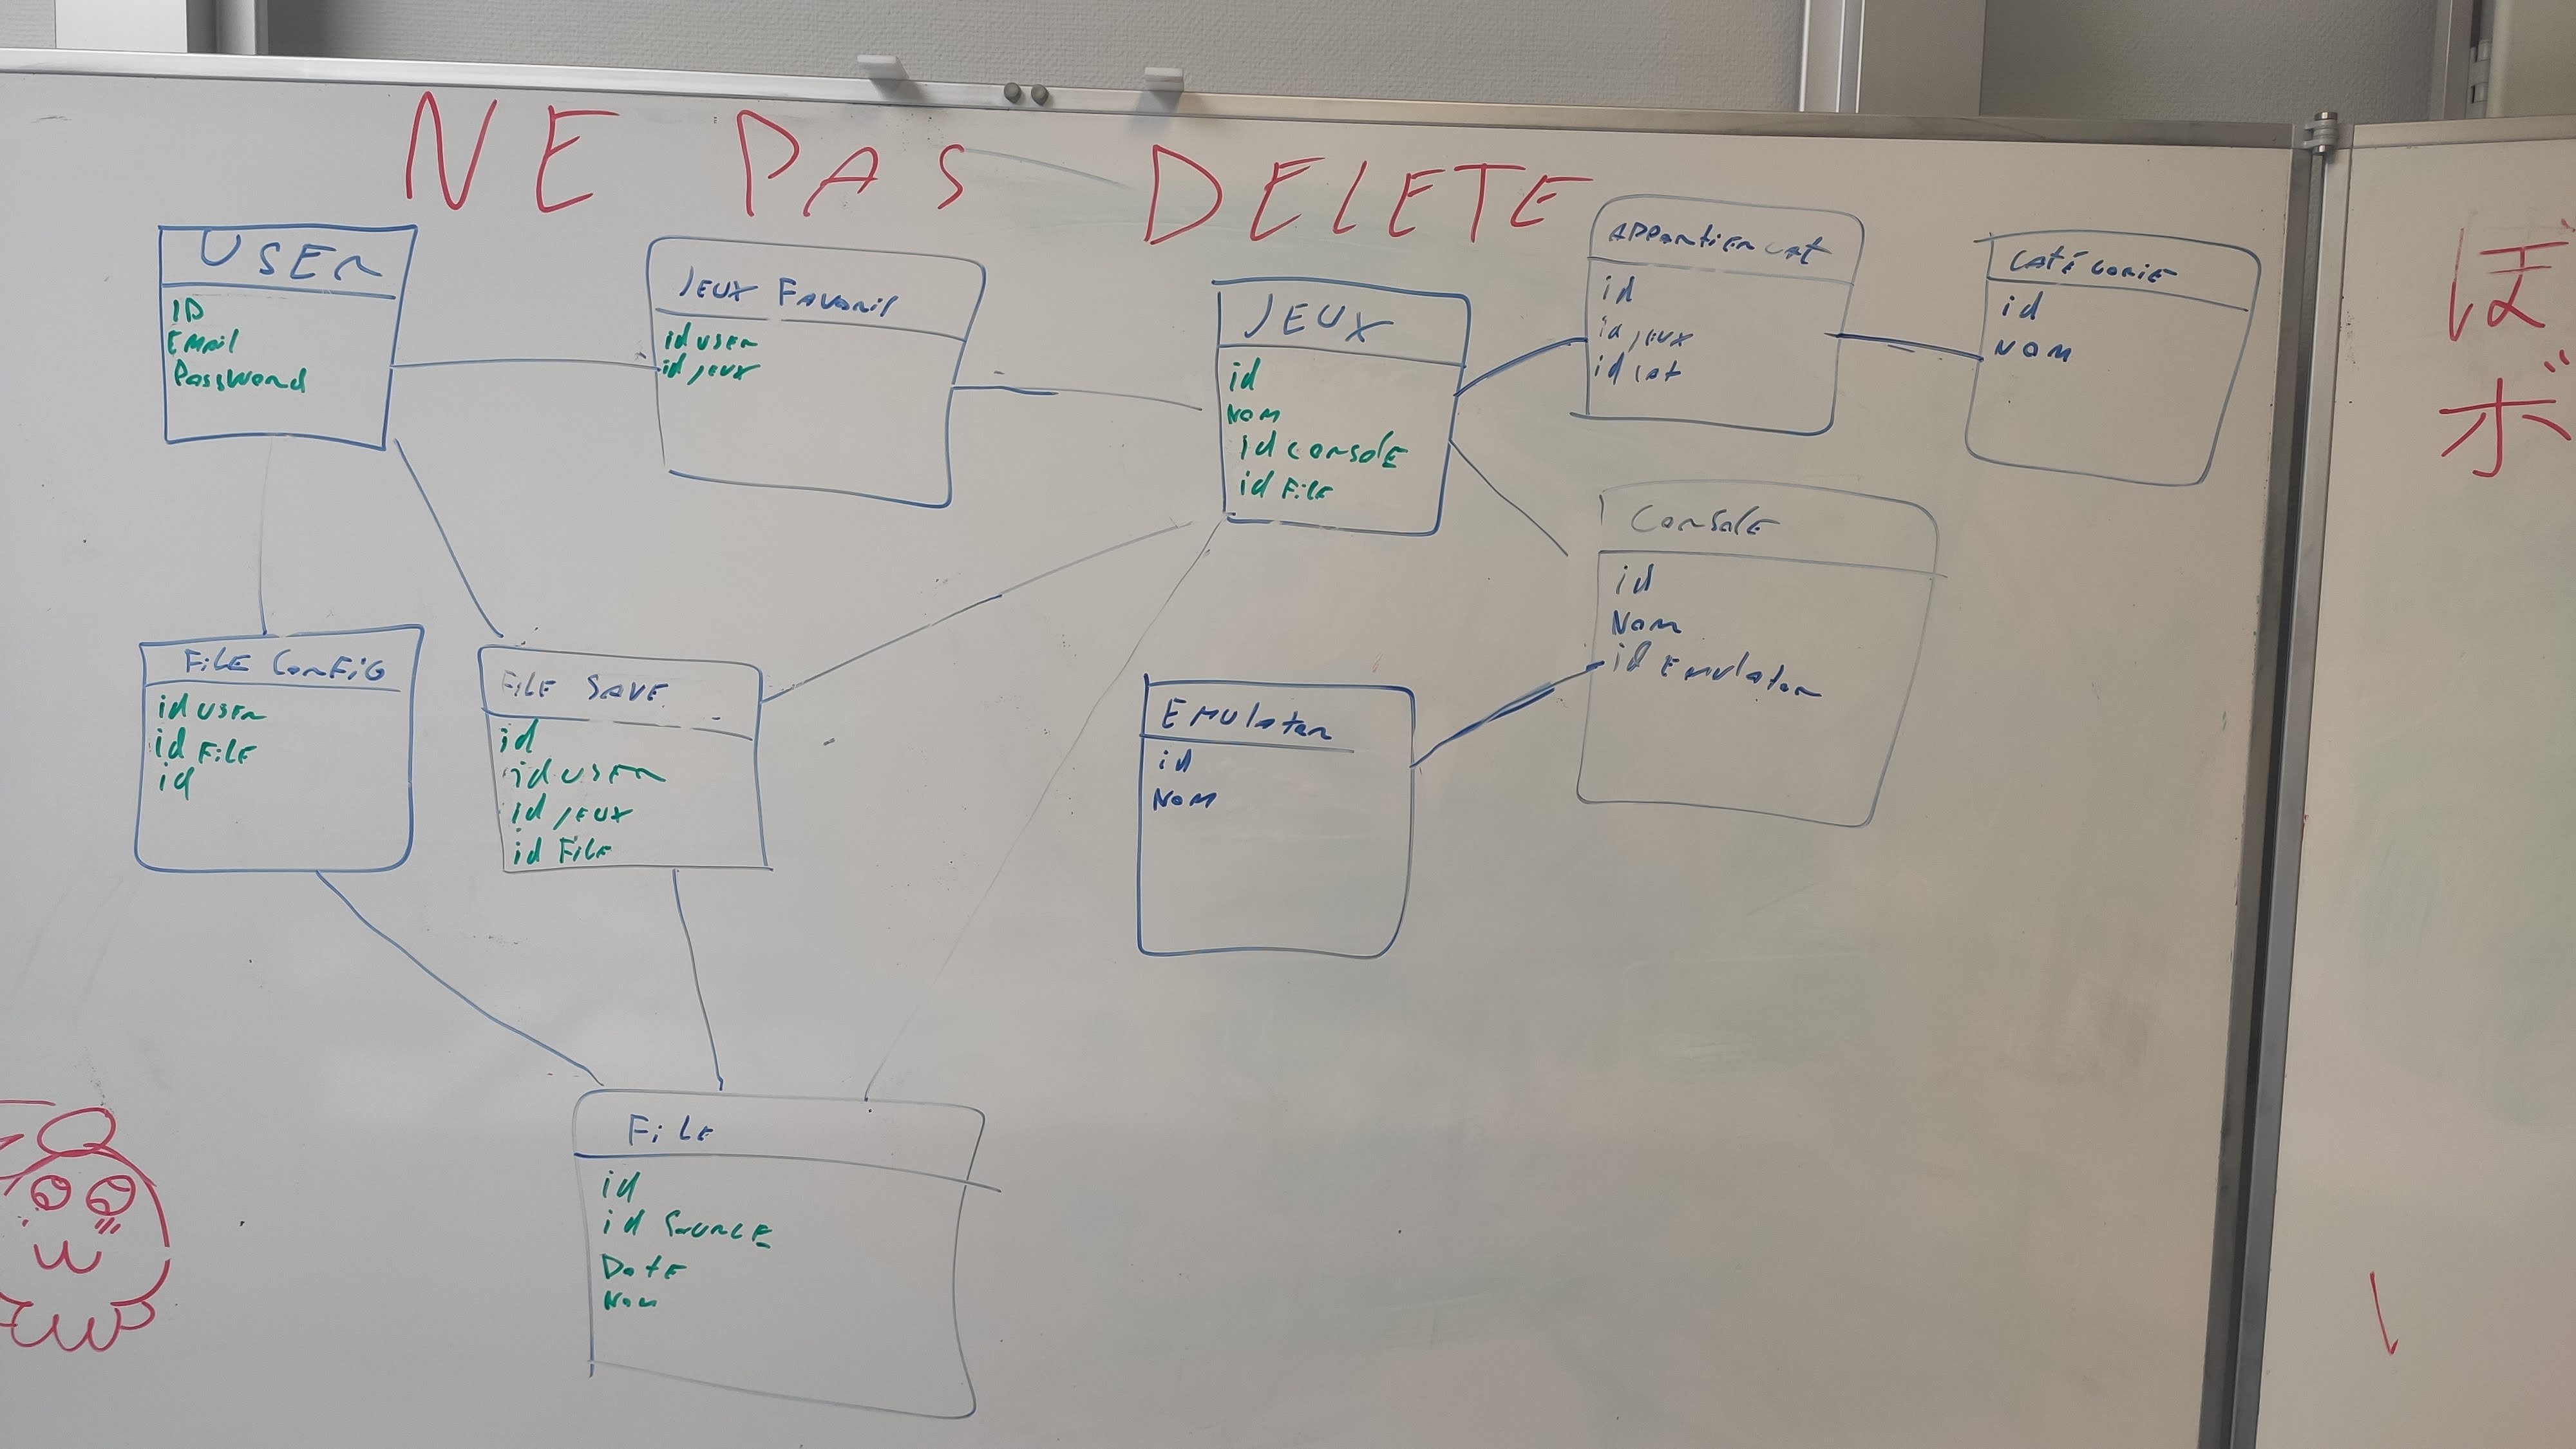 NE PAS DELETE
USER
ID
Email
Password
JEUX Favoris
id user
id jeux
JEUX
id
Nom
id console
id File
appartien cat
id
id jeux
id cat
Catégorie
id
Nom
Console
id
Nom
id Emulator
Emulator
id
Nom
File Config
id user
id File
id
File Save
id
id user
id jeux
id File
File
id
id Source
Date
Nom
ぼ
ボ